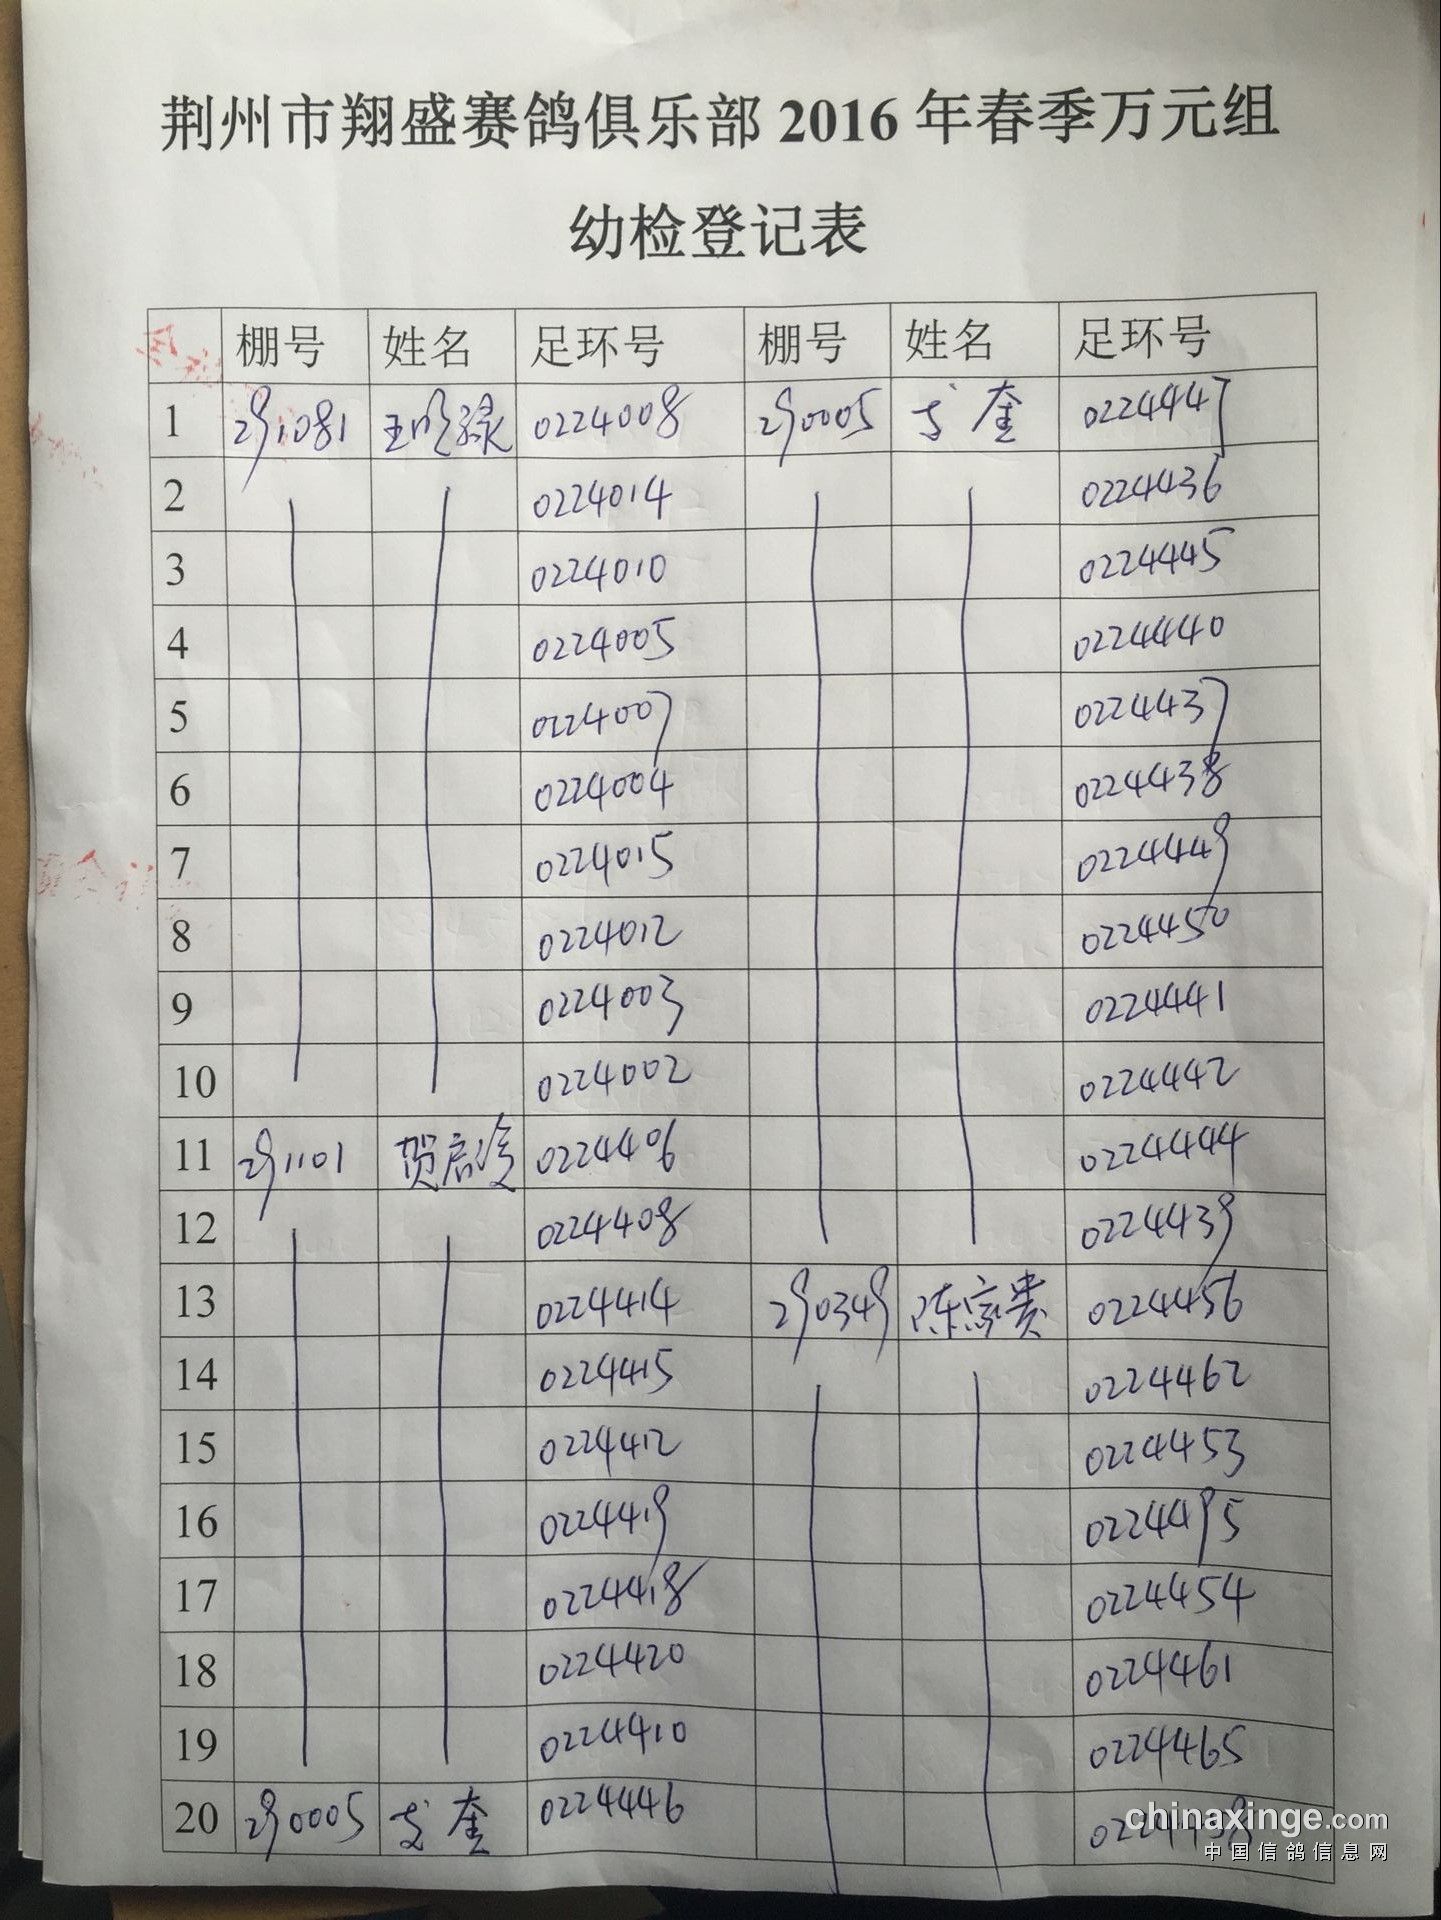 荆州市翔盛赛鸽俱乐部2016年春季万元组
幼检登记表
棚号 姓名 足环号 棚号 姓名 足环号
1 291081 0224008 290005 奎 0224447
2 0224014 0224436
3 0224010 0224445
4 0224005 0224440
5 0224007 0224437
6 0224004 0224438
7 0224015 0224449
8 0224012 0224450
9 0224003 0224441
10 0224002 0224442
11 291101 贺启俊 0224406 0224444
12 0224408 0224439
13 0224414 290349 陈家贵 0224456
14 0224415 0224462
15 0224412 0224453
16 0224419 0224495
17 0224418 0224454
18 0224420 0224461
19 0224410 0224465
20 290005 奎 0224446
chinaxinge.com
中国信鸽信息网